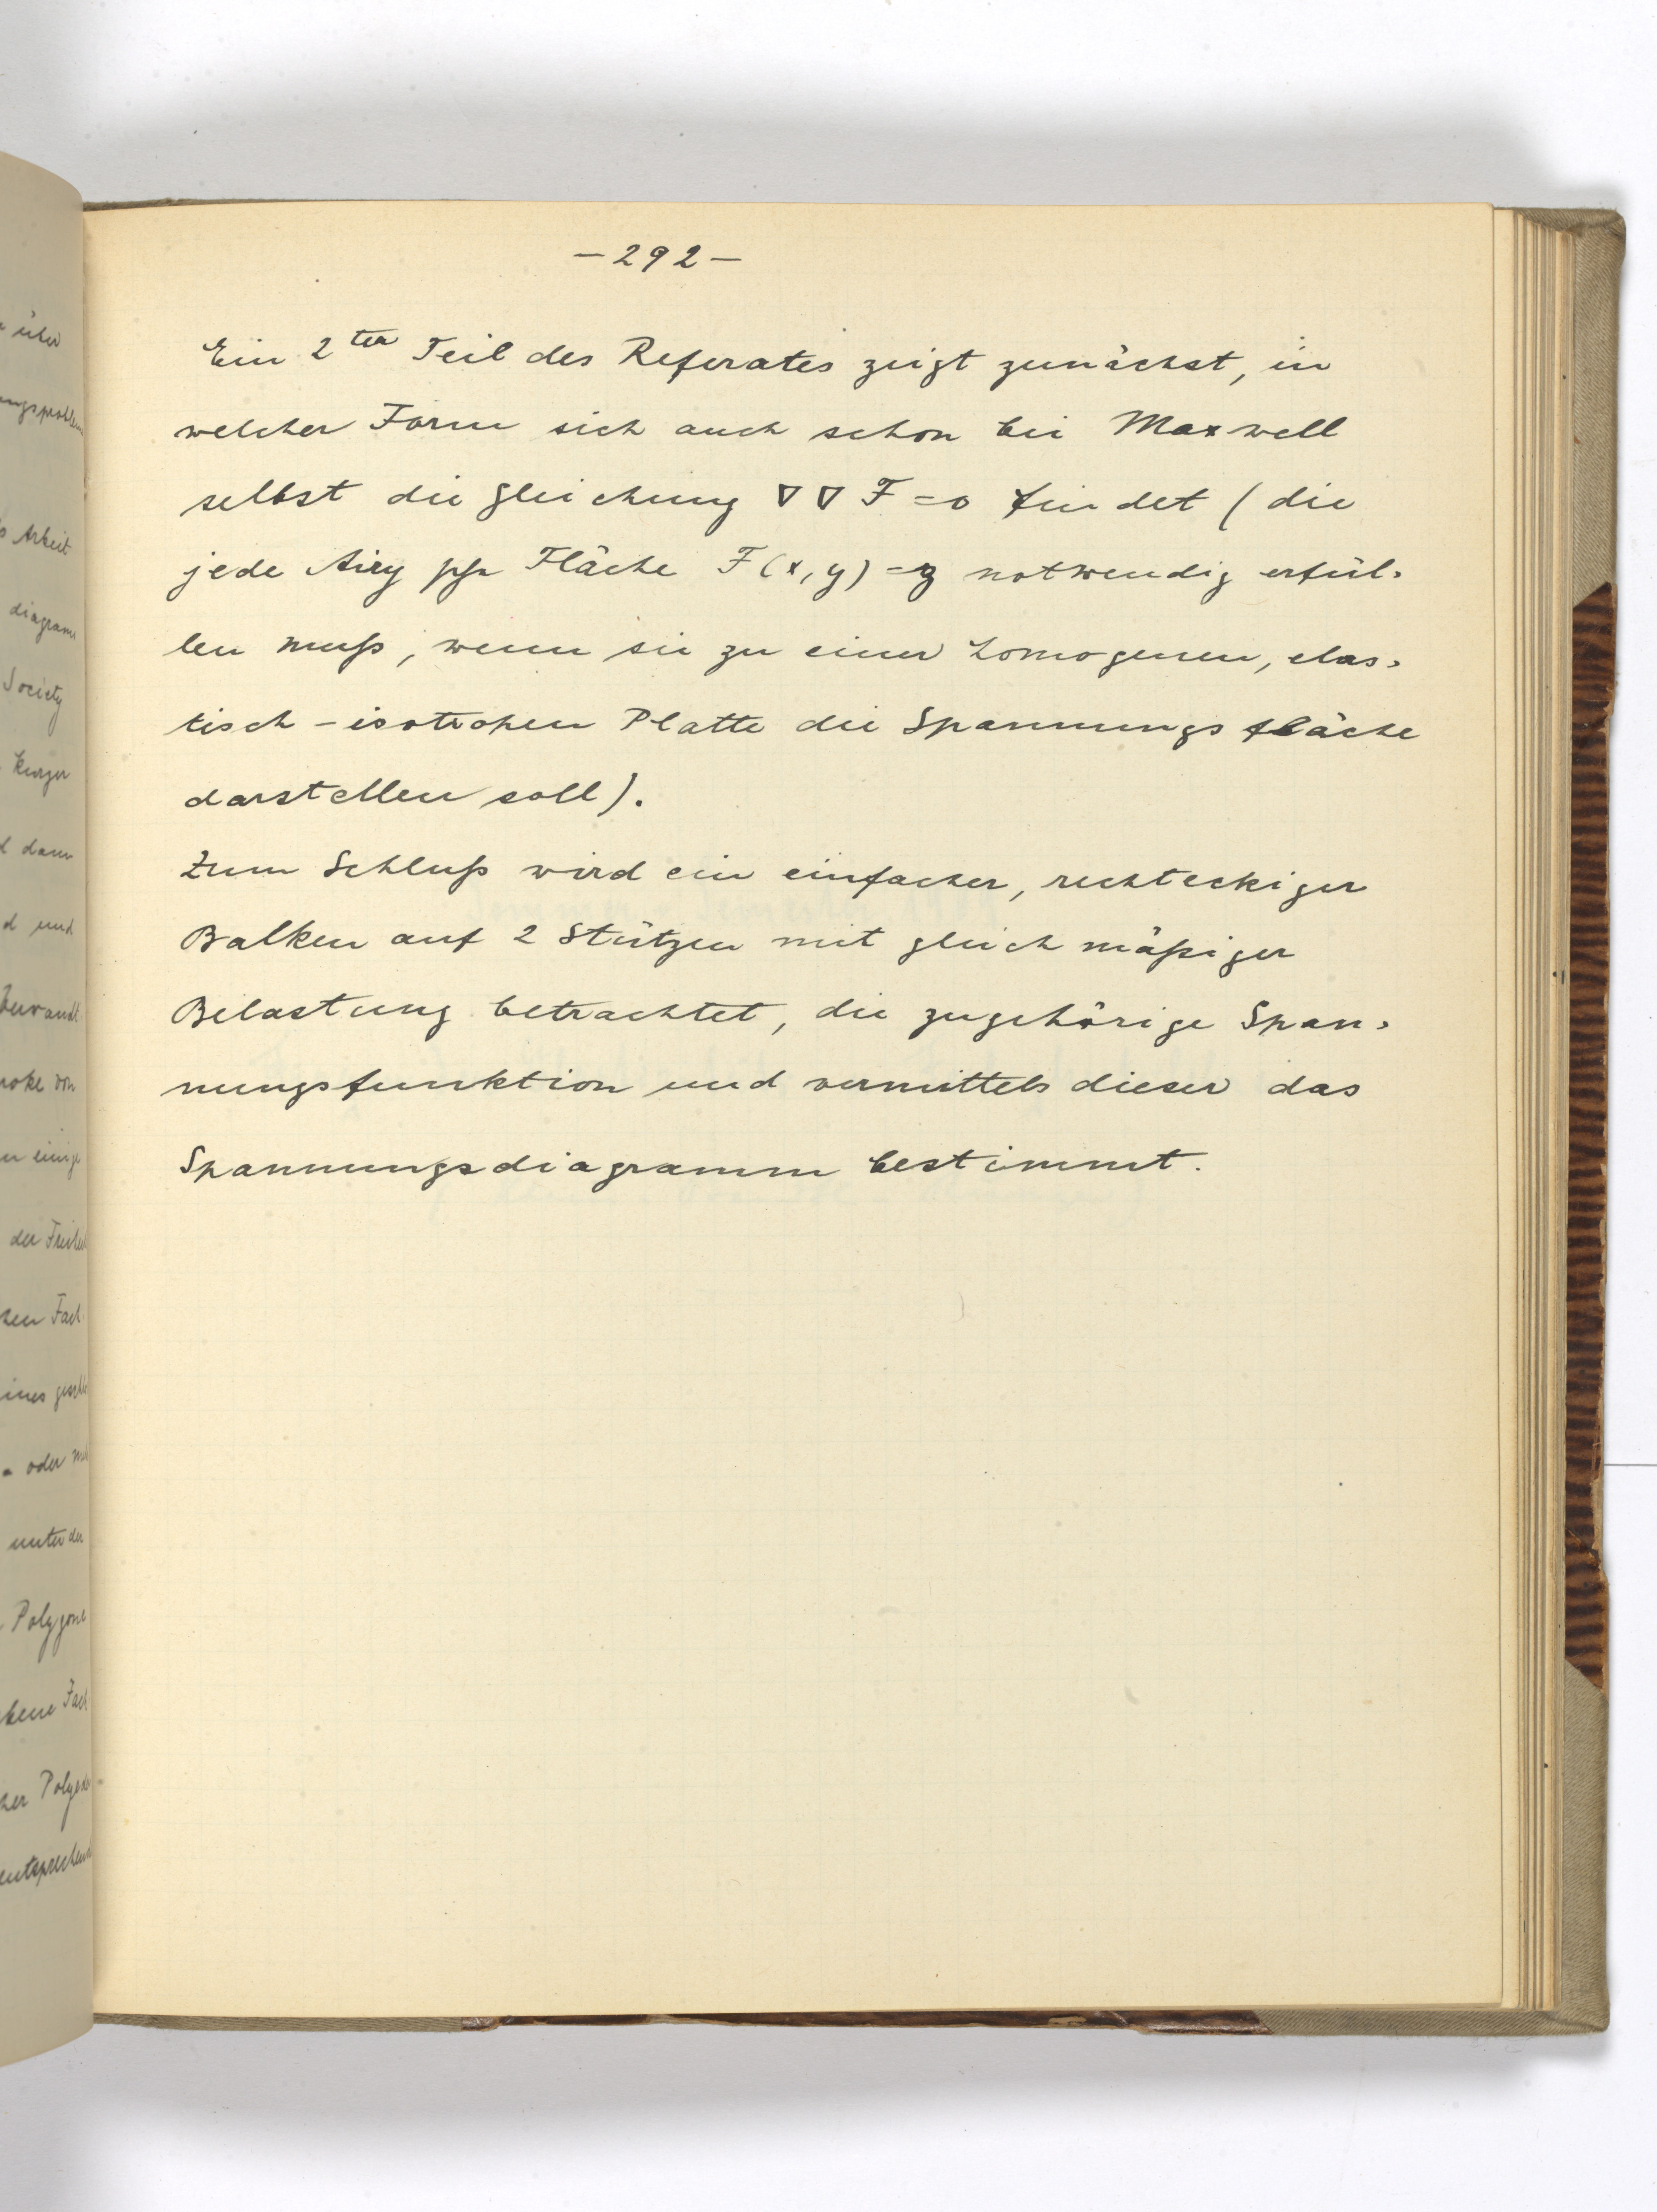 – 292 –
Ein 2ter Teil des Referates zeigt zunächst, in
welcher Form sich auch schon bei Maxwell
selbst die Gleichung ∇∇F=0 findet (die
jede Airy sche Fläche F(x,y)=z notwendig erfül-
len muß, wenn sie zu einer homogenen, elas-
tisch-isotropen Platte die Spannungsfläche
darstellen soll).
Zum Schluß wird ein einfacher, rechteckiger
Balken auf 2 Stützen mit gleichmäßiger
Belastung betrachtet, die zugehörige Span-
nungsfunktion und vermittels dieser das
Spannungsdiagramm bestimmt.
über
Arbeit
diagramm
Society
kurzer
dann
und
von
der
Fach
oder
unter der
Polygone